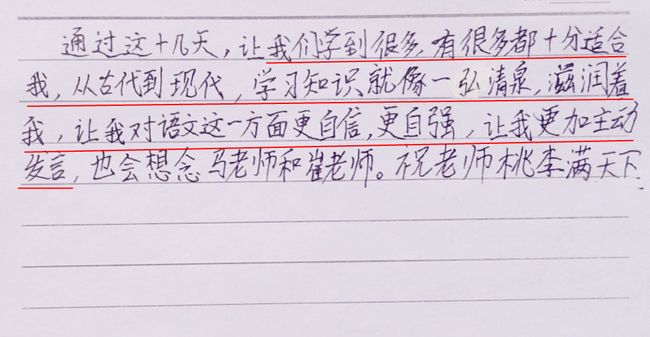 通过这十几天，让我们学到很多，有很多都十分适合
我，从古代到现代，学习知识就像一弘清泉，滋润着
我，让我对语文这一方面更自信，更自强，让我更加主动
发言，也会想念马老师和崔老师。祝老师桃李满天下